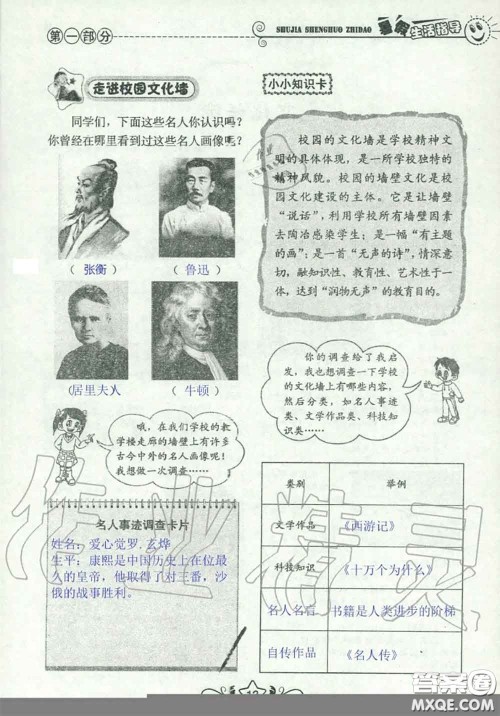 第一部分
SHUJIA SHENGHUO ZHIDAO
暑假
生活指导
走进校园文化墙
同学们，下面这些名人你认识吗？
你曾经在哪里看到过这些名人画像呢？
（ 张衡 ）
（ 鲁迅 ）
（居里夫人）
（ 牛顿 ）
哦，在我们学校的教
学楼走廊的墙壁上有许多
古今中外的名人画像呢！
我想做一次调查……
名人事迹调查卡片
姓名：爱心觉罗.玄烨
生平：康熙是中国历史上在位最
久的皇帝，他取得了对三番，沙
俄的战事胜利。
小小知识卡
校园的文化墙是学校精神文
明的具体体现，是一所学校独特的
精神风貌。校园的墙壁文化是校
园文化建设的主体。它是让墙壁
“说话”，利用学校所有墙壁因素
去陶冶感染学生；是一幅“有主题
的画”；是一首“无声的诗”，情深意
切，融知识性、教育性、艺术性于一
体，达到“润物无声”的教育目的。
你的调查给了我启
发，我也想调查一下学校
的文化墙上有哪些内容，
然后分类，如名人事迹
类、文学作品类、科技知
识类……
类别 举例
文学作品 《西游记》
科技知识 《十万个为什么》
名人名言 书籍是人类进步的阶梯
自传作品 《名人传》
作业精灵
答案圈
MXQE.COM